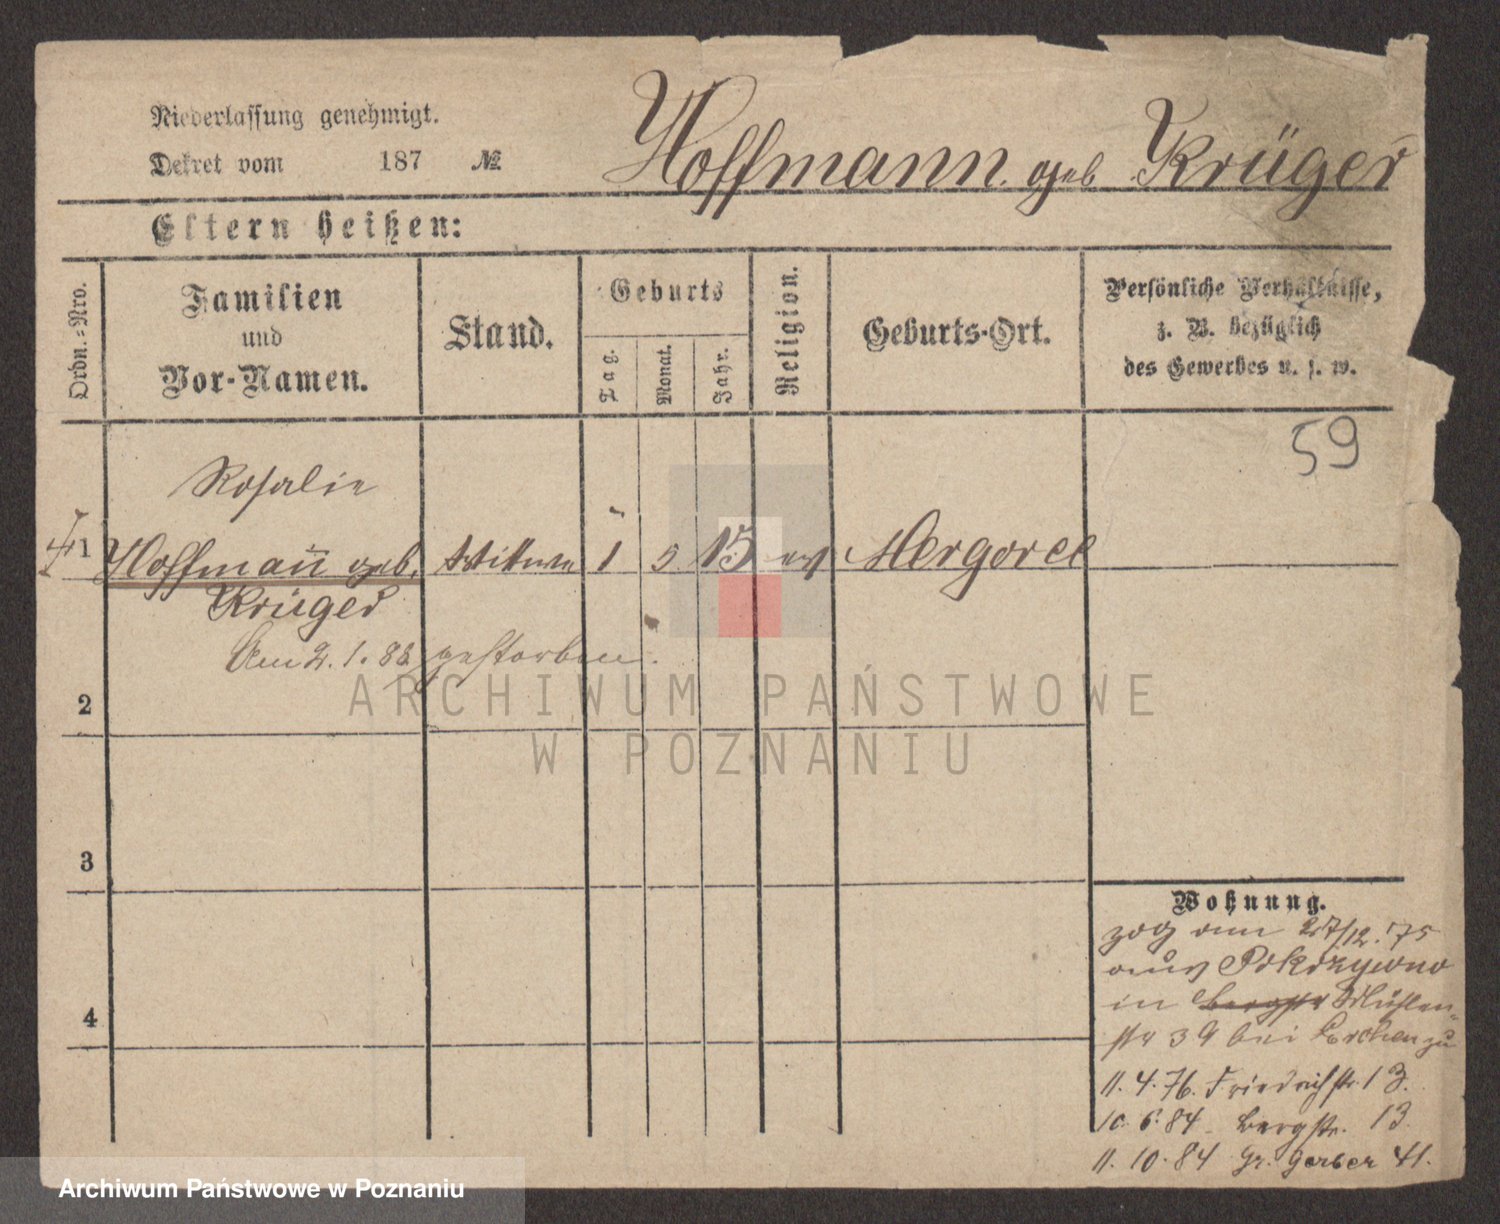 Niederlassung genehmigt.
Dekret vom 187 №
Hoffmann geb Krüger
Eltern heißen:
Ordn.-Nro.
Familien
und
Vor-Namen.
Stand.
Geburts
Tag.
Monat.
Jahr.
Religion.
Geburts-Ort.
Persönliche Verhältnisse,
z. B. bezüglich
des Gewerbes u. s. w.
59
Rosalie
1 Hoffmann geb. Wittwe 1 5 15 ev Mergorel
Krüger
Am 2.1.86 gestorben.
2
3
4
Wohnung.
zog am 27/12. 75
aus Pokrzywno
in Bergstr Mühlen-
str 39 bei Lerchenzu
11. 4. 76. Friedrichstr. 13.
10. 6. 84 - Bergstr. 13.
11. 10. 84 Gr. Gerber 41.
ARCHIWUM PAŃSTWOWE
W POZNANIU
Archiwum Państwowe w Poznaniu